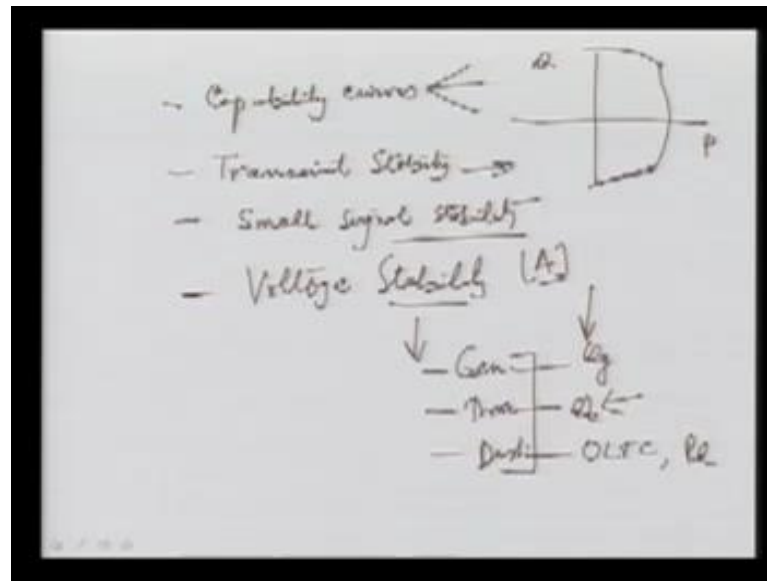 - Capability curves
Q
P
- Transient Stability
- Small signal stability
- Voltage Stability [A]
- Gen - Qg
- Tran -
- Dist - OLTC,